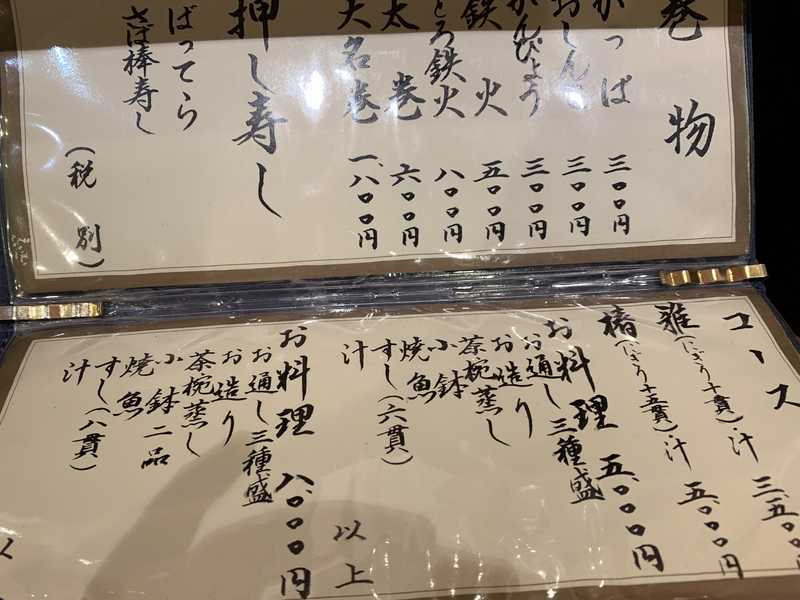 巻物
かっぱ 三〇〇円
おしんこ 三〇〇円
かんぴょう 三〇〇円
鉄火 五〇〇円
とろ鉄火 八〇〇円
太巻 六〇〇円
大名巻 一、八〇〇円
押し寿し
ばってら
さば棒寿し
(税別)
コース
雅(にぎり十貫)・汁 三、五〇
椿(にぎり十五貫)・汁 五、〇〇円
お料理 五、〇〇〇円
お通し三種盛
お造り
茶椀蒸し
小鉢
焼魚
すし(六貫)
汁
以上
お料理 八、〇〇〇円
お通し三種盛
お造り
茶椀蒸し
小鉢二品
焼魚
すし(八貫)
汁
以